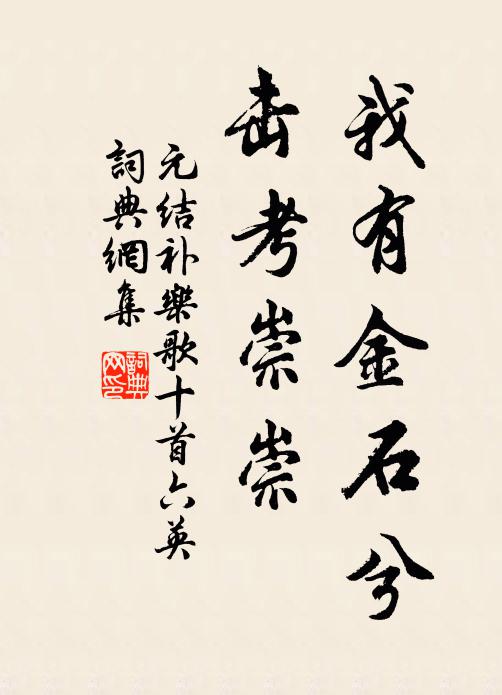 我有金石兮
击考崇崇
元结补樂歌十首六英
詞典網集
詞典网印